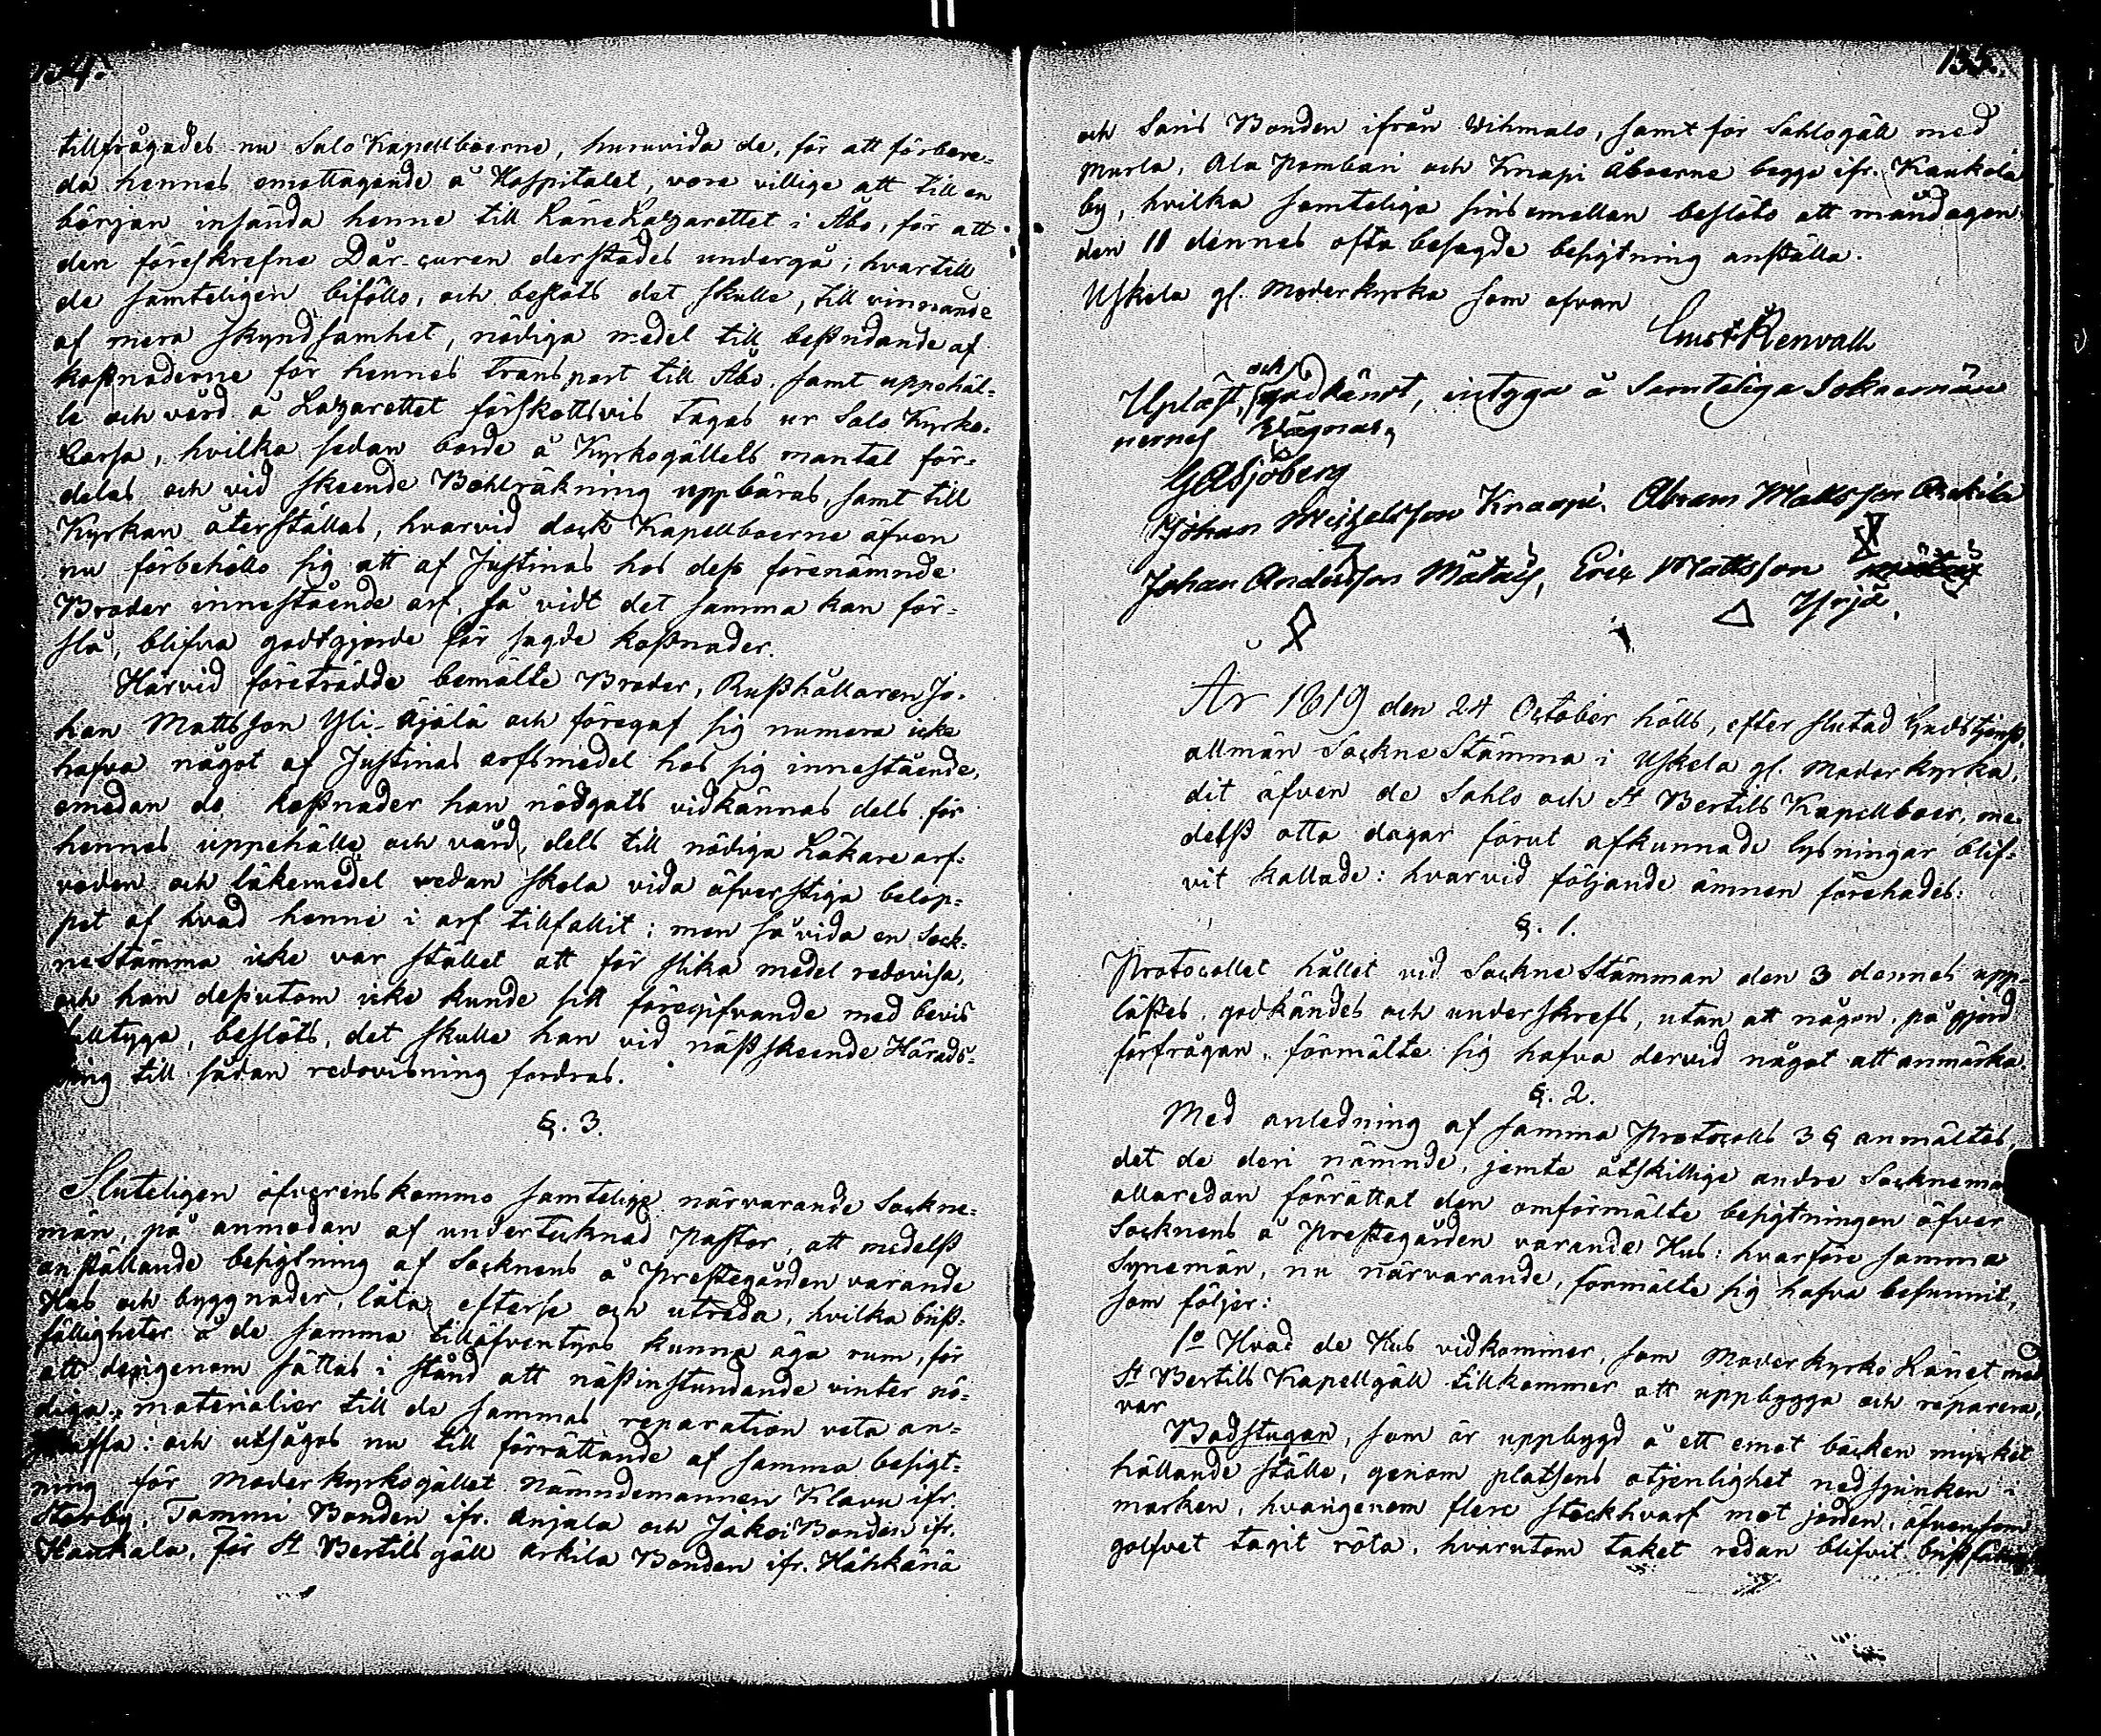 134.
tillfrågades nu Salo Kapellboerne, huruvida de, för att förbere-
da hennes emottagande å Hospitalet, vore villige att till en
början insända henne till Läns Lazarettet i Åbo, för att
den föreskrefne Dår-curen derstädes undergå; hvartill
de samteligen biföllo, och beslöts det skulle, till vinnande
af mera skyndsamhet, nödiga medel till bestridande af
kostnaderne för hennes transport till Åbo, samt uppehäl-
le och vård å Lazarettet förskottsvis tagas ur Salo Kyrko-
Cassa, hvilka sedan borde å Kyrkogällets mantal för-
delas och vid skeende Bohlräkning uppbäras, samt till
Kyrkan återställas, hvarvid dock Kapellboerne äfven
nu förbehöllo sig att af Justinas hos dess förenämnde
Broder innestående arf, så vidt det samma kan för-
slå, blifva godtgjorde för sagde kostnader.
Härvid företrädde bemälte Broder, Rusthållaren Jo-
han Mattsson Yli-Äjälä och föregaf sig numera icke
hafva något af Justinas arfsmedel hos sig innestående,
emedan de kostnader han nödgats vidkännas dels för
hennes uppehälle och vård, dels till nödiga Läkare arf-
voden och läkemedel redan skola vida öfverstiga belop-
pet af hvad henne i arf tillfallit: men så vida en Sock-
ne Stämma icke var stället att för slika medel redovisa,
och han dessutom icke kunde sitt föregifvande med bevis
fulltyga, beslöts, det skulle han vid nästskeende Härads-
ting till sådan redovisning fordras.
§. 3.
Sluteligen öfverenskommo samtelige närvarande Sockne-
män, på anmodan af undertecknad Pastor, att medelst
anställande besigtning af Socknens å Prestegården varande
Hus och byggnader, låta efterse och utreda, hvilka brist-
fälligheter å de samma tilläfventyrs kunna äga rum, för
att derigenom sättas i stånd att nästinstundande vinter nö-
diga materialier till de sammas reparation veta an-
skaffa: och utsågos nu till förrättande af samma besigt-
ning för Moderkyrkogället Nämndemannen Klavu ifr.
Storby, Tammi Bonden ifr. Anjala och Jakoi Bonden ifr.
Haukala, för St Bertils gäll Arkila Bonden ifr. Hähkänä
135.
och Saris Bonden ifrån Vihmalo, samt för Sahlo gäll med
Murla, Ala Pombari och Knapi Åboerne begge ifr. Kaukola
by, hvilka samteliga sins emellan beslöto att måndagen
den 11 dennes ofta besagde besigtning anställa.
Uskela gl. Moderkyrka som ofvan
Gust. Renvall
Uplæst, och godkändt, intyga å Samteliga Sokneman
nernes Wägnar,
G A Sjöberg
Johan Michelsson Knaapi. Abram Mattsson Arkila
Johan Andersson Mätäis, Erik Mattsson
Yrjä.
År 1819 den 24 October hölls, efter slutad Gudstjenst,
allmän SockneStämma i Uskela gl. Moderkyrka,
dit äfven de Sahlo och St Bertils Kapellboer, me-
delst otta dagar förut afkunnade lysningar blif-
vit kallade: hvarvid följande ämnen förehades:
§. 1.
Protocollet hållet vid SockneStämman den 3 dennes upp-
lästes, godkändes och underskrefs, utan att någon, på gjord
förfrågan, förmälte sig hafva dervid något att anmärka.
§. 2.
Med anledning af samma Protocolls 3 § anmältes,
det de deri nämnde, jemte åtskillige andre Sockneman
allaredan förrättat den omförmälte besigtningen öfver
Socknens å Prestegården varande Hus: hvarföre samma
Synemän, nu närvarande, förmälte sig hafva befunnit,
som följer:
1o Hvad de Hus vidkommer, som Moderkyrko Länet med
St Bertils Kapellgäll tillkommer att uppbygga och reparera,
var
Badstugan, som är uppbygd å ett emot bäcken myrket
hållande ställe, genom platsens otjenlighet nedsjunken i
marken, hvarigenom flere stockhvarf mot jorden, äfvensom
golfvet tagit röta, hvarutom taket redan blifvit